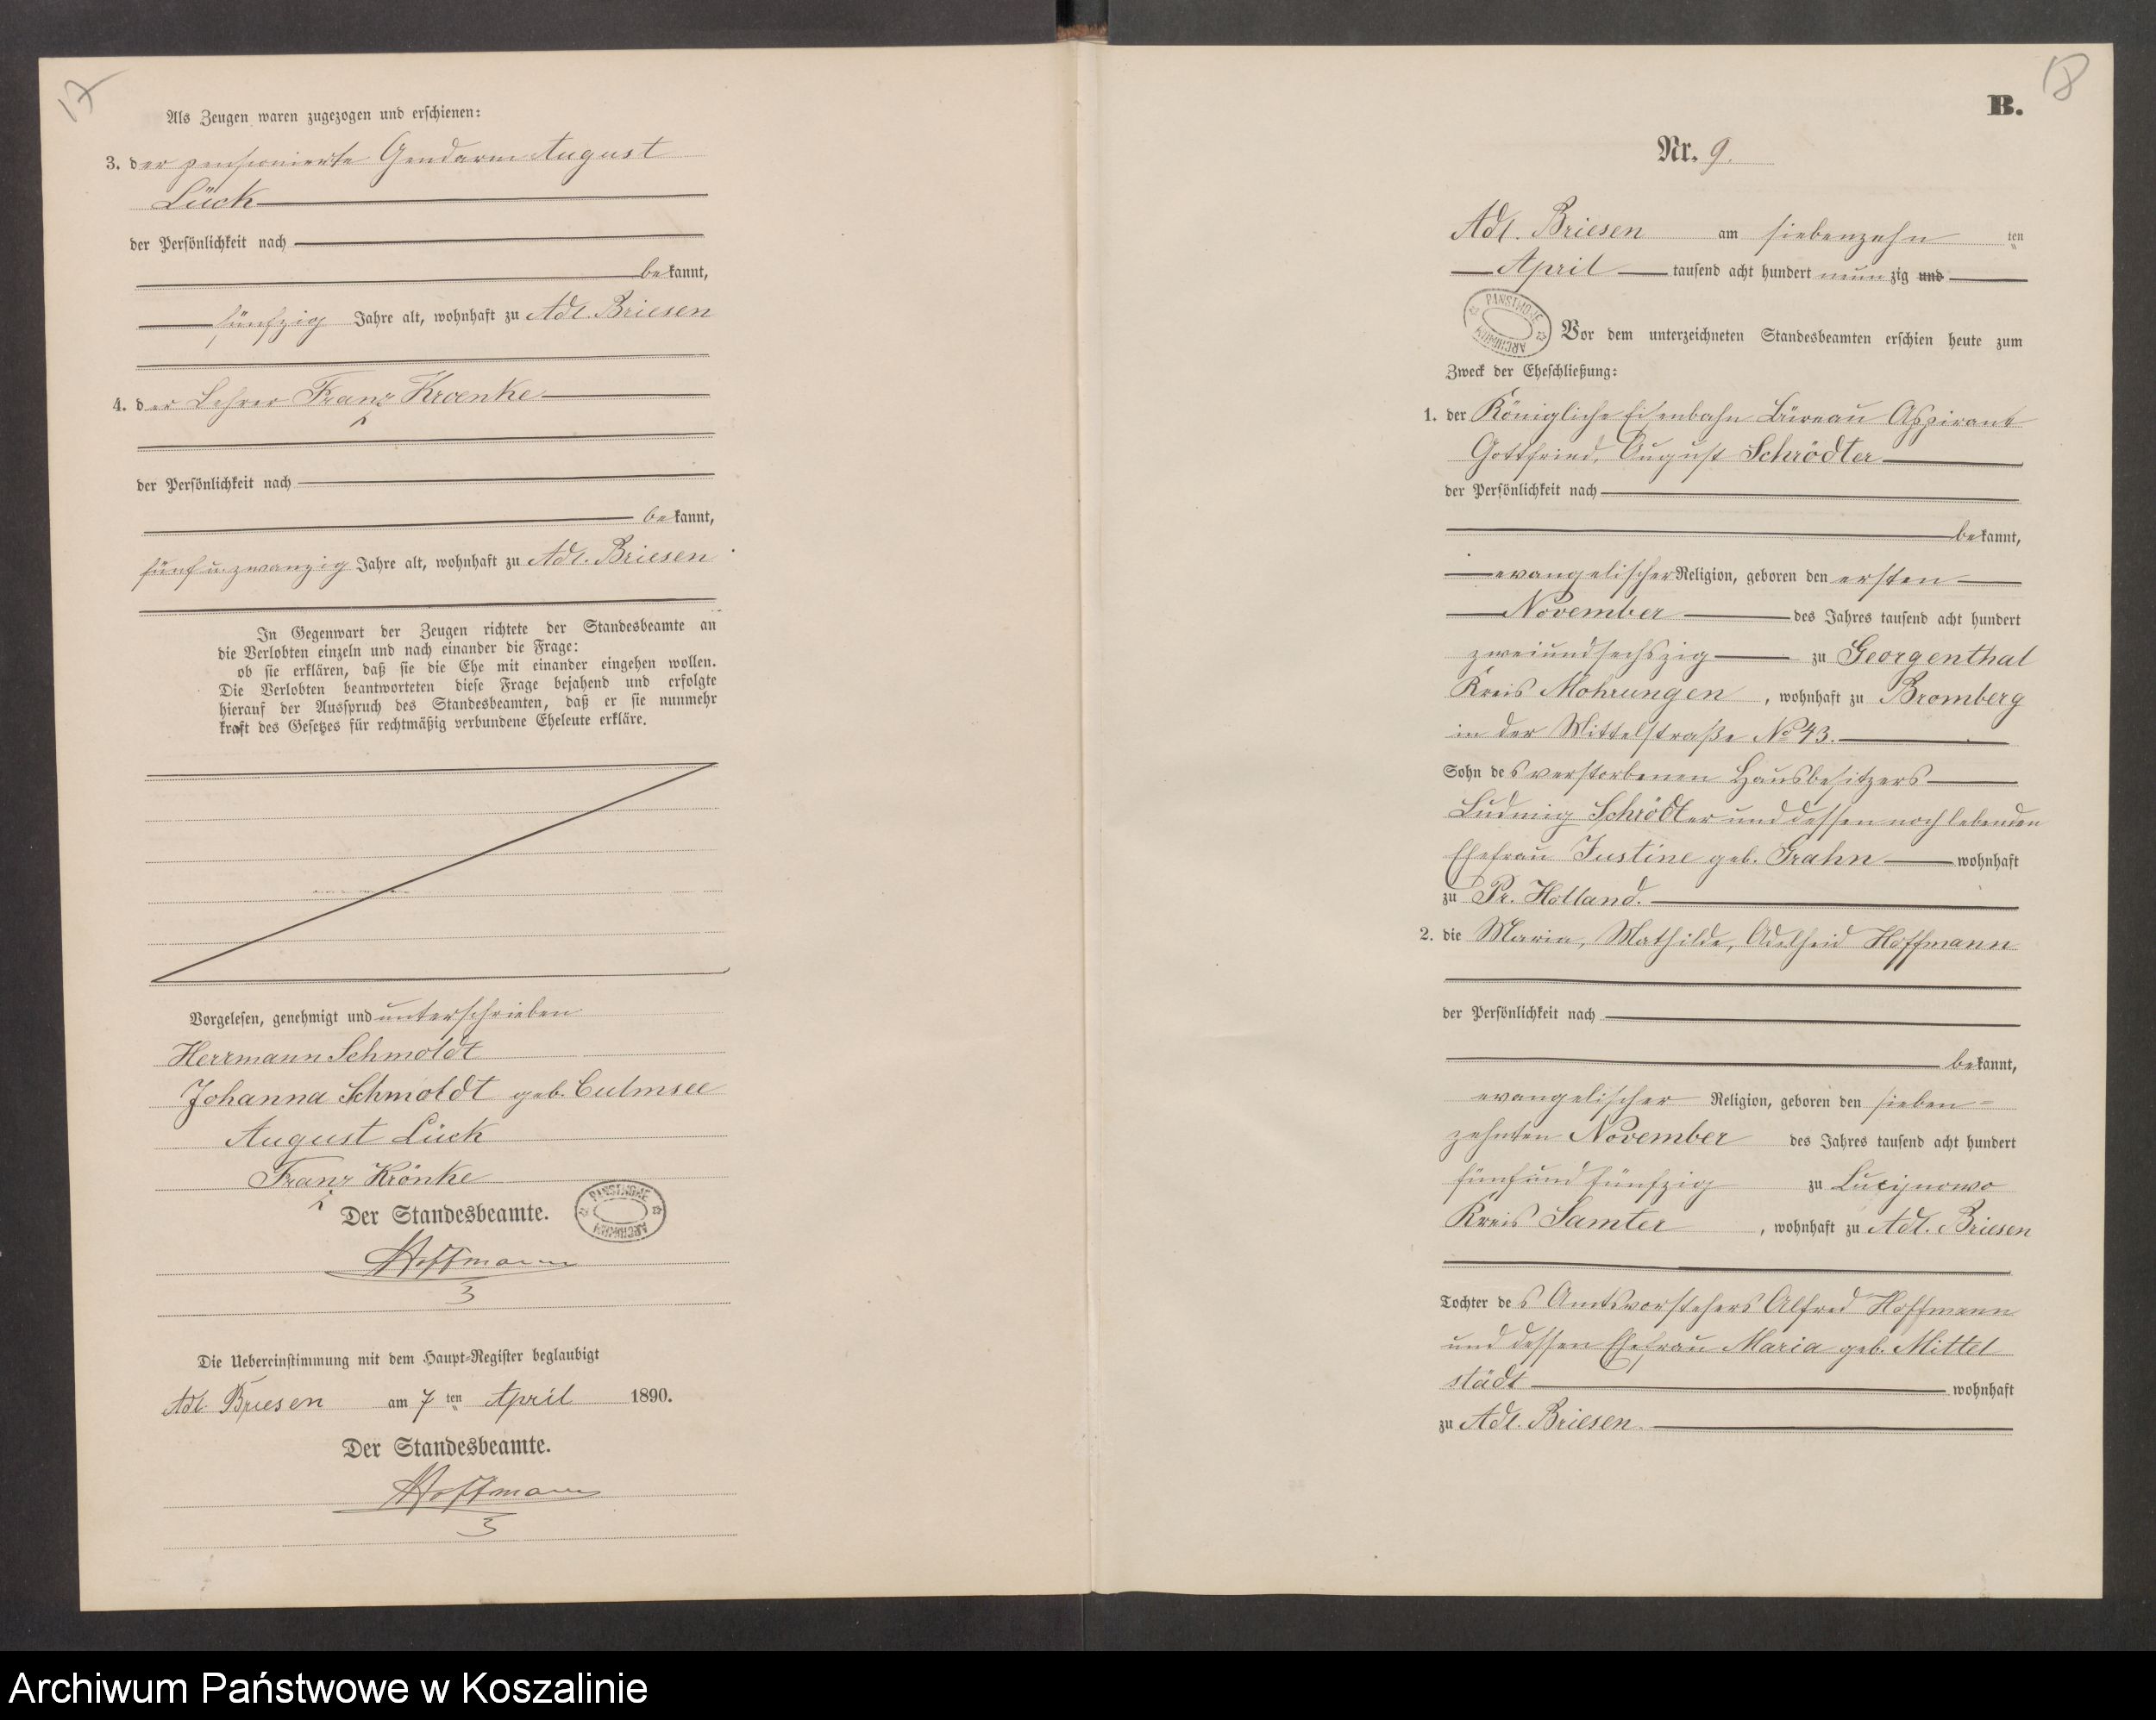 17
Als Zeugen waren zugezogen und erschienen:
3. der pensionierte Gendarm August
Lück
der Persönlichkeit nach
bekannt,
fünfzig Jahre alt, wohnhaft zu Adl. Briesen
4. der Lehrer Franz Kroenke
der Persönlichkeit nach
bekannt,
fünf u. zwanzig Jahre alt, wohnhaft zu Adl. Briesen
In Gegenwart der Zeugen richtete der Standesbeamte an
die Verlobten einzeln und nach einander die Frage:
ob sie erklären, daß sie die Ehe mit einander eingehen wollen.
Die Verlobten beantworteten diese Frage bejahend und erfolgte
hierauf der Ausspruch des Standesbeamten, daß er sie nunmehr
kraft des Gesetzes für rechtmäßig verbundene Eheleute erkläre.
Vorgelesen, genehmigt und unterschrieben
Herrmann Schmoldt
Johanna Schmoldt geb. Culmsee
August Lück
Franz Krönke
Der Standesbeamte.
PANSTWOWE ARCHIWUM
Hoffmann
Die Uebereinstimmung mit dem Haupt-Register beglaubigt
Adl. Briesen am 7 ten April 1890.
Der Standesbeamte.
Hoffmann
18
B.
Nr. 9.
Adl. Briesen am siebenzehn ten
April tausend acht hundert neunzig und
PANSTWOWE ARCHIWUM
Vor dem unterzeichneten Standesbeamten erschien heute zum
Zweck der Eheschließung:
1. der Königliche Eisenbahn Büreau Aspirant
Gottfried, August Schrödter
der Persönlichkeit nach
bekannt,
evangelischer Religion, geboren den ersten
November des Jahres tausend acht hundert
zweiundsechszig zu Georgenthal
Kreis Mohrungen, wohnhaft zu Bromberg
in der Mittelstraße No 43.
Sohn des verstorbenen Hausbesitzers
Ludwig Schrödter und dessen noch lebenden
Ehefrau Justine geb. Grahn wohnhaft
zu Pr. Holland.
2. die Maria, Mathilde, Adelheid Hoffmann
der Persönlichkeit nach
bekannt,
evangelischer Religion, geboren den sieben-
zehnten November des Jahres tausend acht hundert
fünfundfünfzig zu Lucijnowo
Kreis Samter, wohnhaft zu Adl. Briesen
Tochter des Amtsvorstehers Alfred Hoffmann
und dessen Ehefrau Maria geb. Mittel
städt wohnhaft
zu Adl. Briesen.
Archiwum Państwowe w Koszalinie